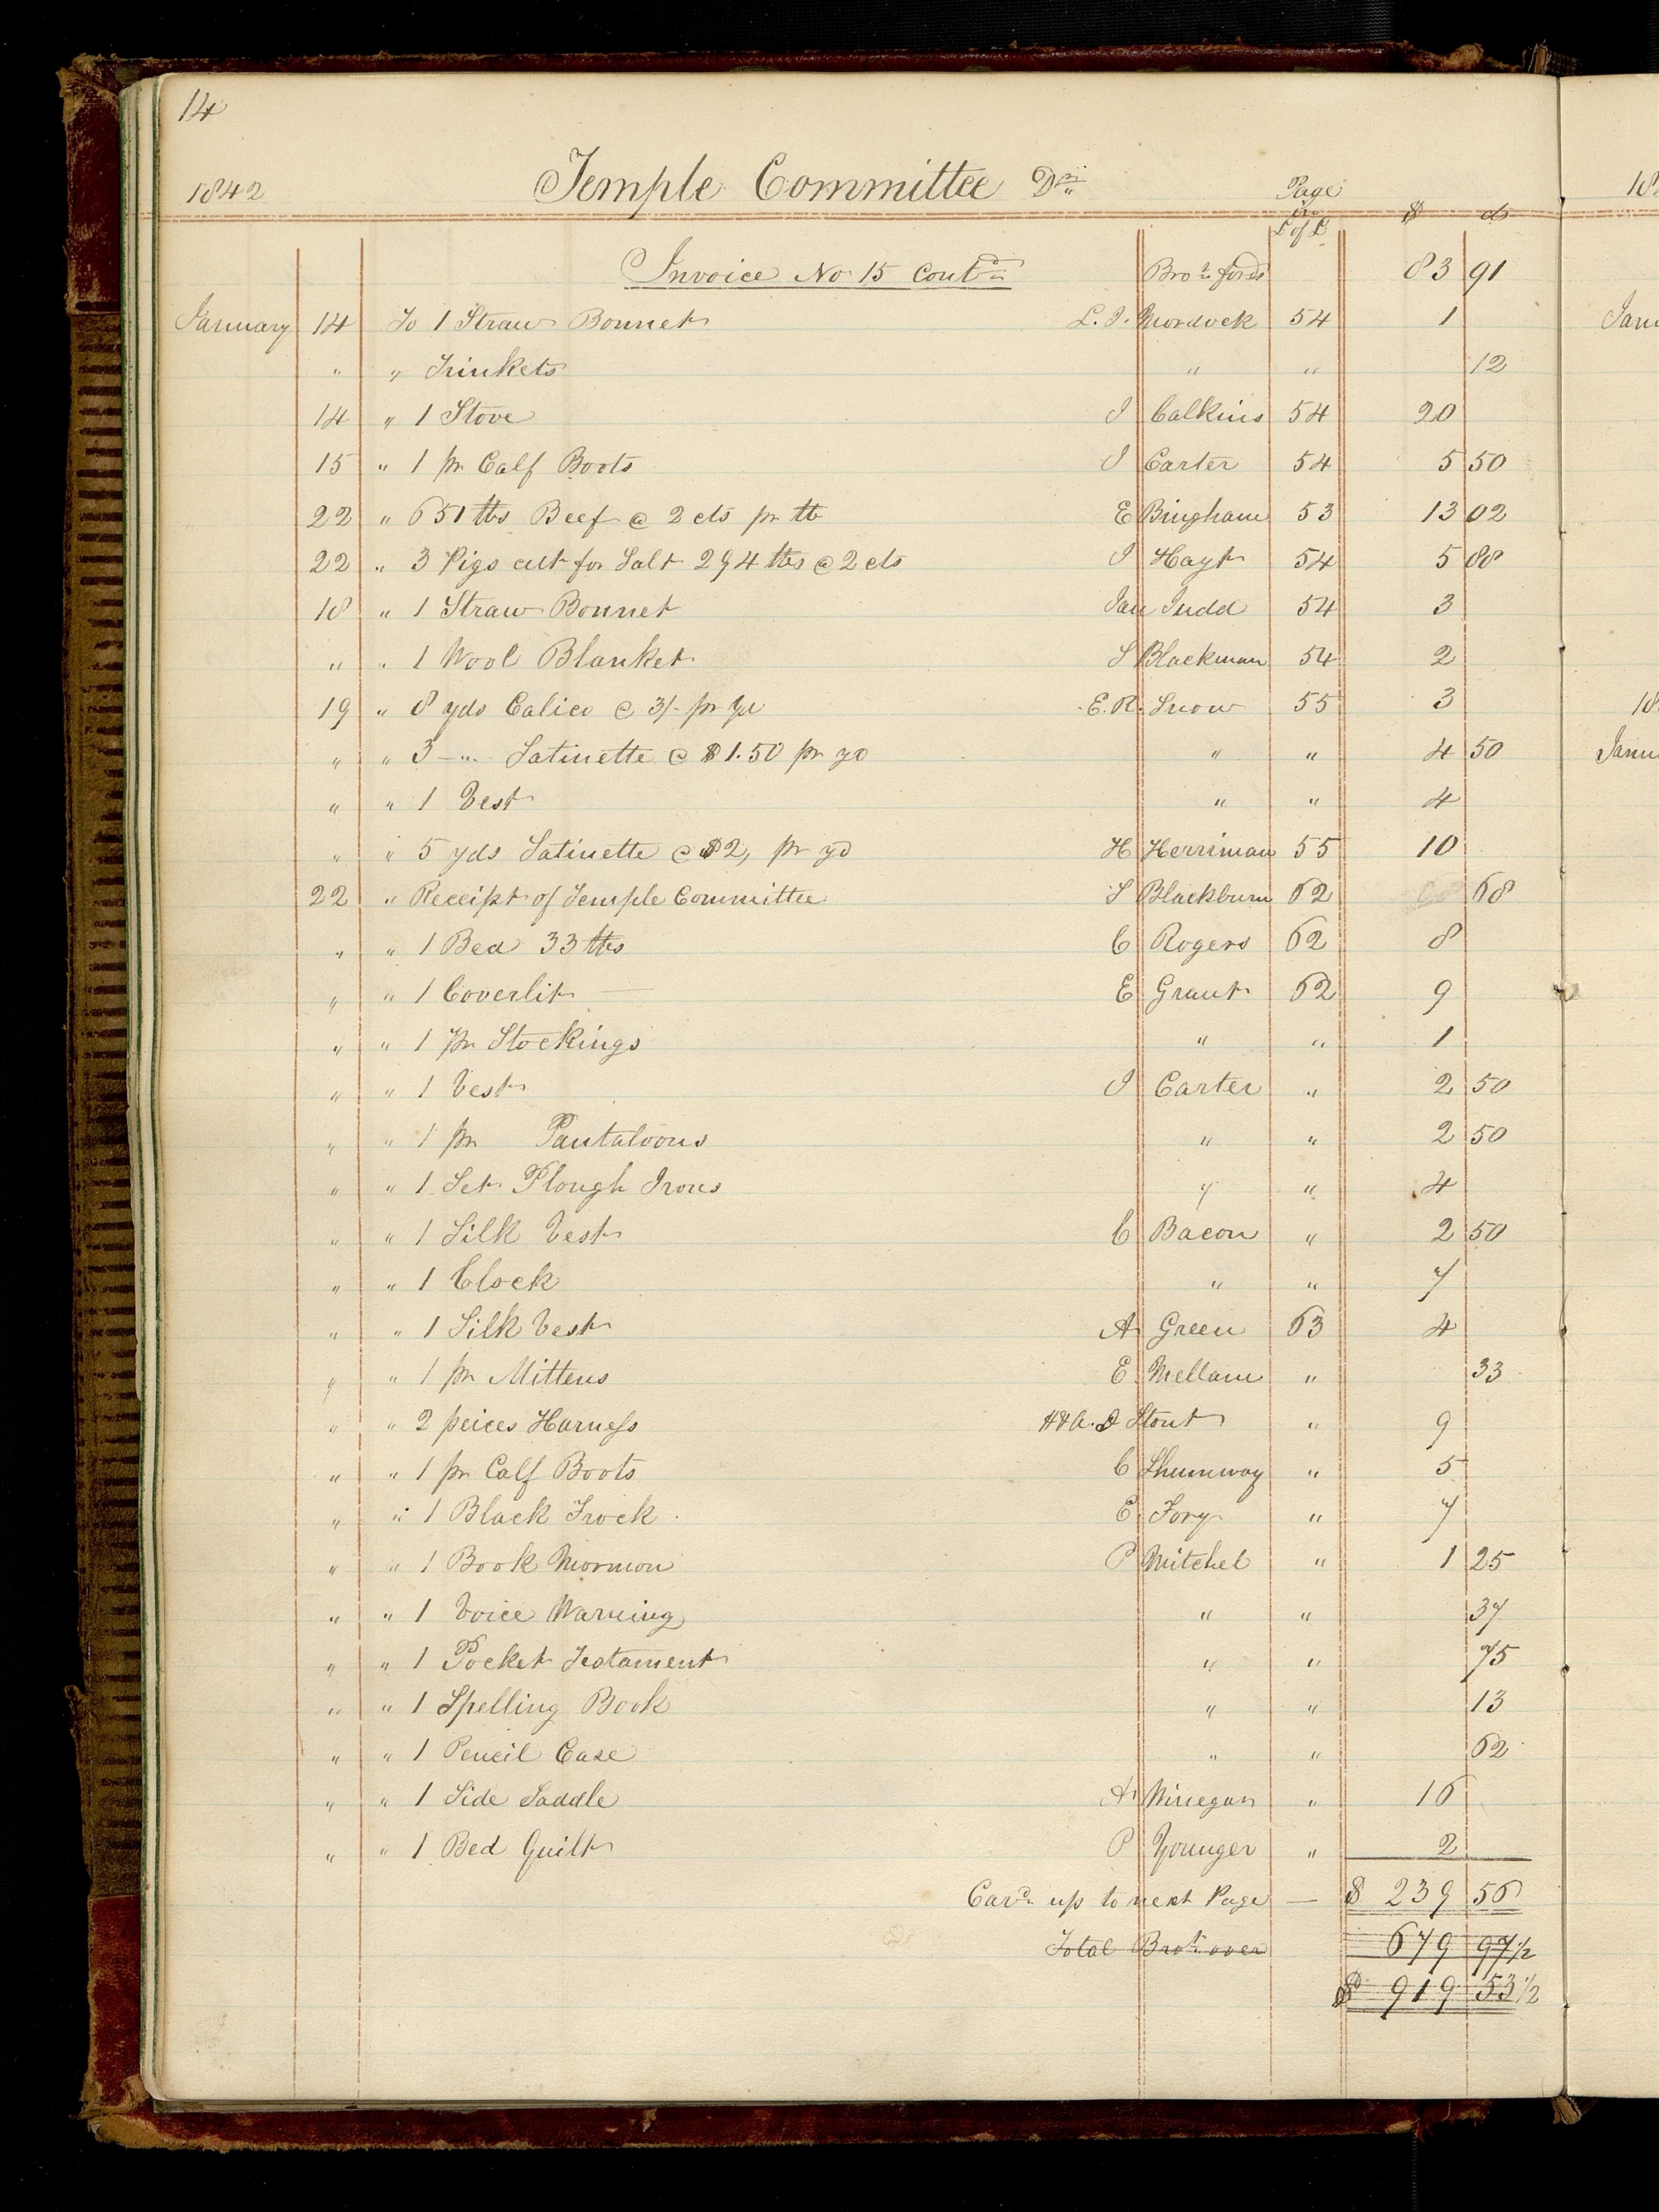 14
1842 Temple Committee Dr.
Page in L of L $ cts
Invoice No 15 Contd Brot. ford 83 91
January 14 To 1 Straw Bonnet L. J. Mordock 54 1
" " Trinkets " " 12
14 " 1 Stove J Calkins 54 20
15 " 1 pr Calf Boots J Carter 54 5 50
22 " 651 lbs Beef @ 2 cts pr lb E Bingham 53 13 02
22 " 3 Pigs cut for Salt 294 lbs @ 2 cts J Hayt 54 5 88
18 " 1 Straw Bonnet Ian Judd 54 3
" " 1 Wool Blanket S Blackman 54 2
19 " 8 yds Calico @ 3/- pr Yd E. R. Snow 55 3
" " 3 -"- Satinette @ $1.50 pr yd " " 4 50
" " 1 Vest " " 4
" " 5 yds Satinette @ $2, pr yd H Herriman 55 10
22 " Receipt of Temple Committee S Blackburn 62 68
" " 1 Bed 33 lbs C Rogers 62 8
" " 1 Coverlit — E Grant 62 9
" " 1 pr Stockings " " 1
" " 1 Vest J Carter " 2 50
" " 1 pr Pantaloons " " 2 50
" " 1 Set Plough Irons " " 4
" " 1 Silk Vest C Bacon " 2 50
" " 1 Clock " " 7
" " 1 Silk Vest A Green 63 4
" " 1 pr Mittens E Mellam " 33
" " 2 peices Harness H & A. J Stout " 9
" " 1 pr Calf Boots C Shumway " 5
" " 1 Black Frock E Fory " 7
" " 1 Book Mormon P Mitchel " 1 25
" " 1 Voice Warning " " 37
" " 1 Pocket Testament " " 75
" " 1 Spelling Book " " 13
" " 1 Pencil Case " " 62
" " 1 Side Saddle A Winegan " 16
" " 1 Bed Quilt P Younger " 2
Card. up to next Page — $ 239 56
Total Brot. over 679 97 1/2
$ 919 53 1/2
18
Janu
18
Janu